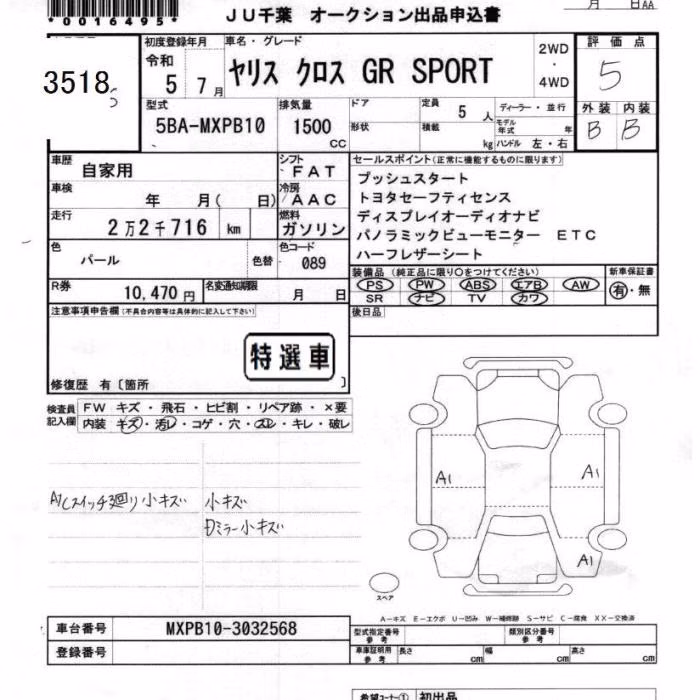 *0016495*
JU千葉 オークション出品申込書
月 日AA
3518
初度登録年月
令和
5 7月
車名・グレード
ヤリス クロス GR SPORT
2WD
・
4WD
評価点
5
外装 内装
B B
型式
5BA-MXPB10
排気量
1500
CC
ドア
形状
定員
5 人
積載
kg
ディーラー・並行
モデル年式 年
ハンドル 左・右
車歴
自家用
シフト
FAT
車検
年 月( 日)
冷房
AAC
走行
2万2千716 km
燃料
ガソリン
色
パール
色替
色コード
089
R券
10,470円
名変通知期限
月 日
セールスポイント(正常に機能するものに限ります)
プッシュスタート
トヨタセーフティセンス
ディスプレイオーディオナビ
パノラミックビューモニター ETC
ハーフレザーシート
装備品(純正品に限り○をつけてください)
PS PW ABS エアB AW
SR ナビ TV カワ
新車保証書
有・無
後日品
注意事項申告欄(不具合内容等は具体的に記入して下さい)
特選車
修復歴 有〔箇所 〕
検査員記入欄
FW キズ・飛石・ヒビ割・リペア跡・×要
内装 キズ・汚レ・コゲ・穴・スレ・キレ・破レ
小キズ 小キズ
Dミラー小キズ
A1
A1
A1
スペア
A-キズ E-エクボ U-凹み W-補修跡 S-サビ C-腐食 XX-交換済
車台番号
MXPB10-3032568
登録番号
型式指定番号
参考
類別区分番号
参考
車庫証明用
参考
長さ cm
幅 cm
高さ cm
希望コーナー① 初出品